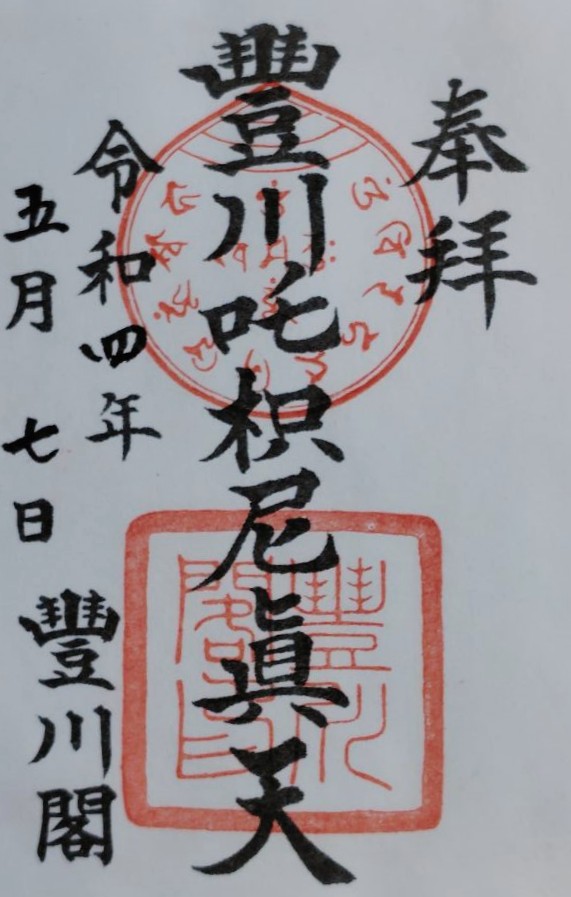 奉拝
豐川吒枳尼眞天
令和四年
五月 七日
豐川閣
豐川閣印